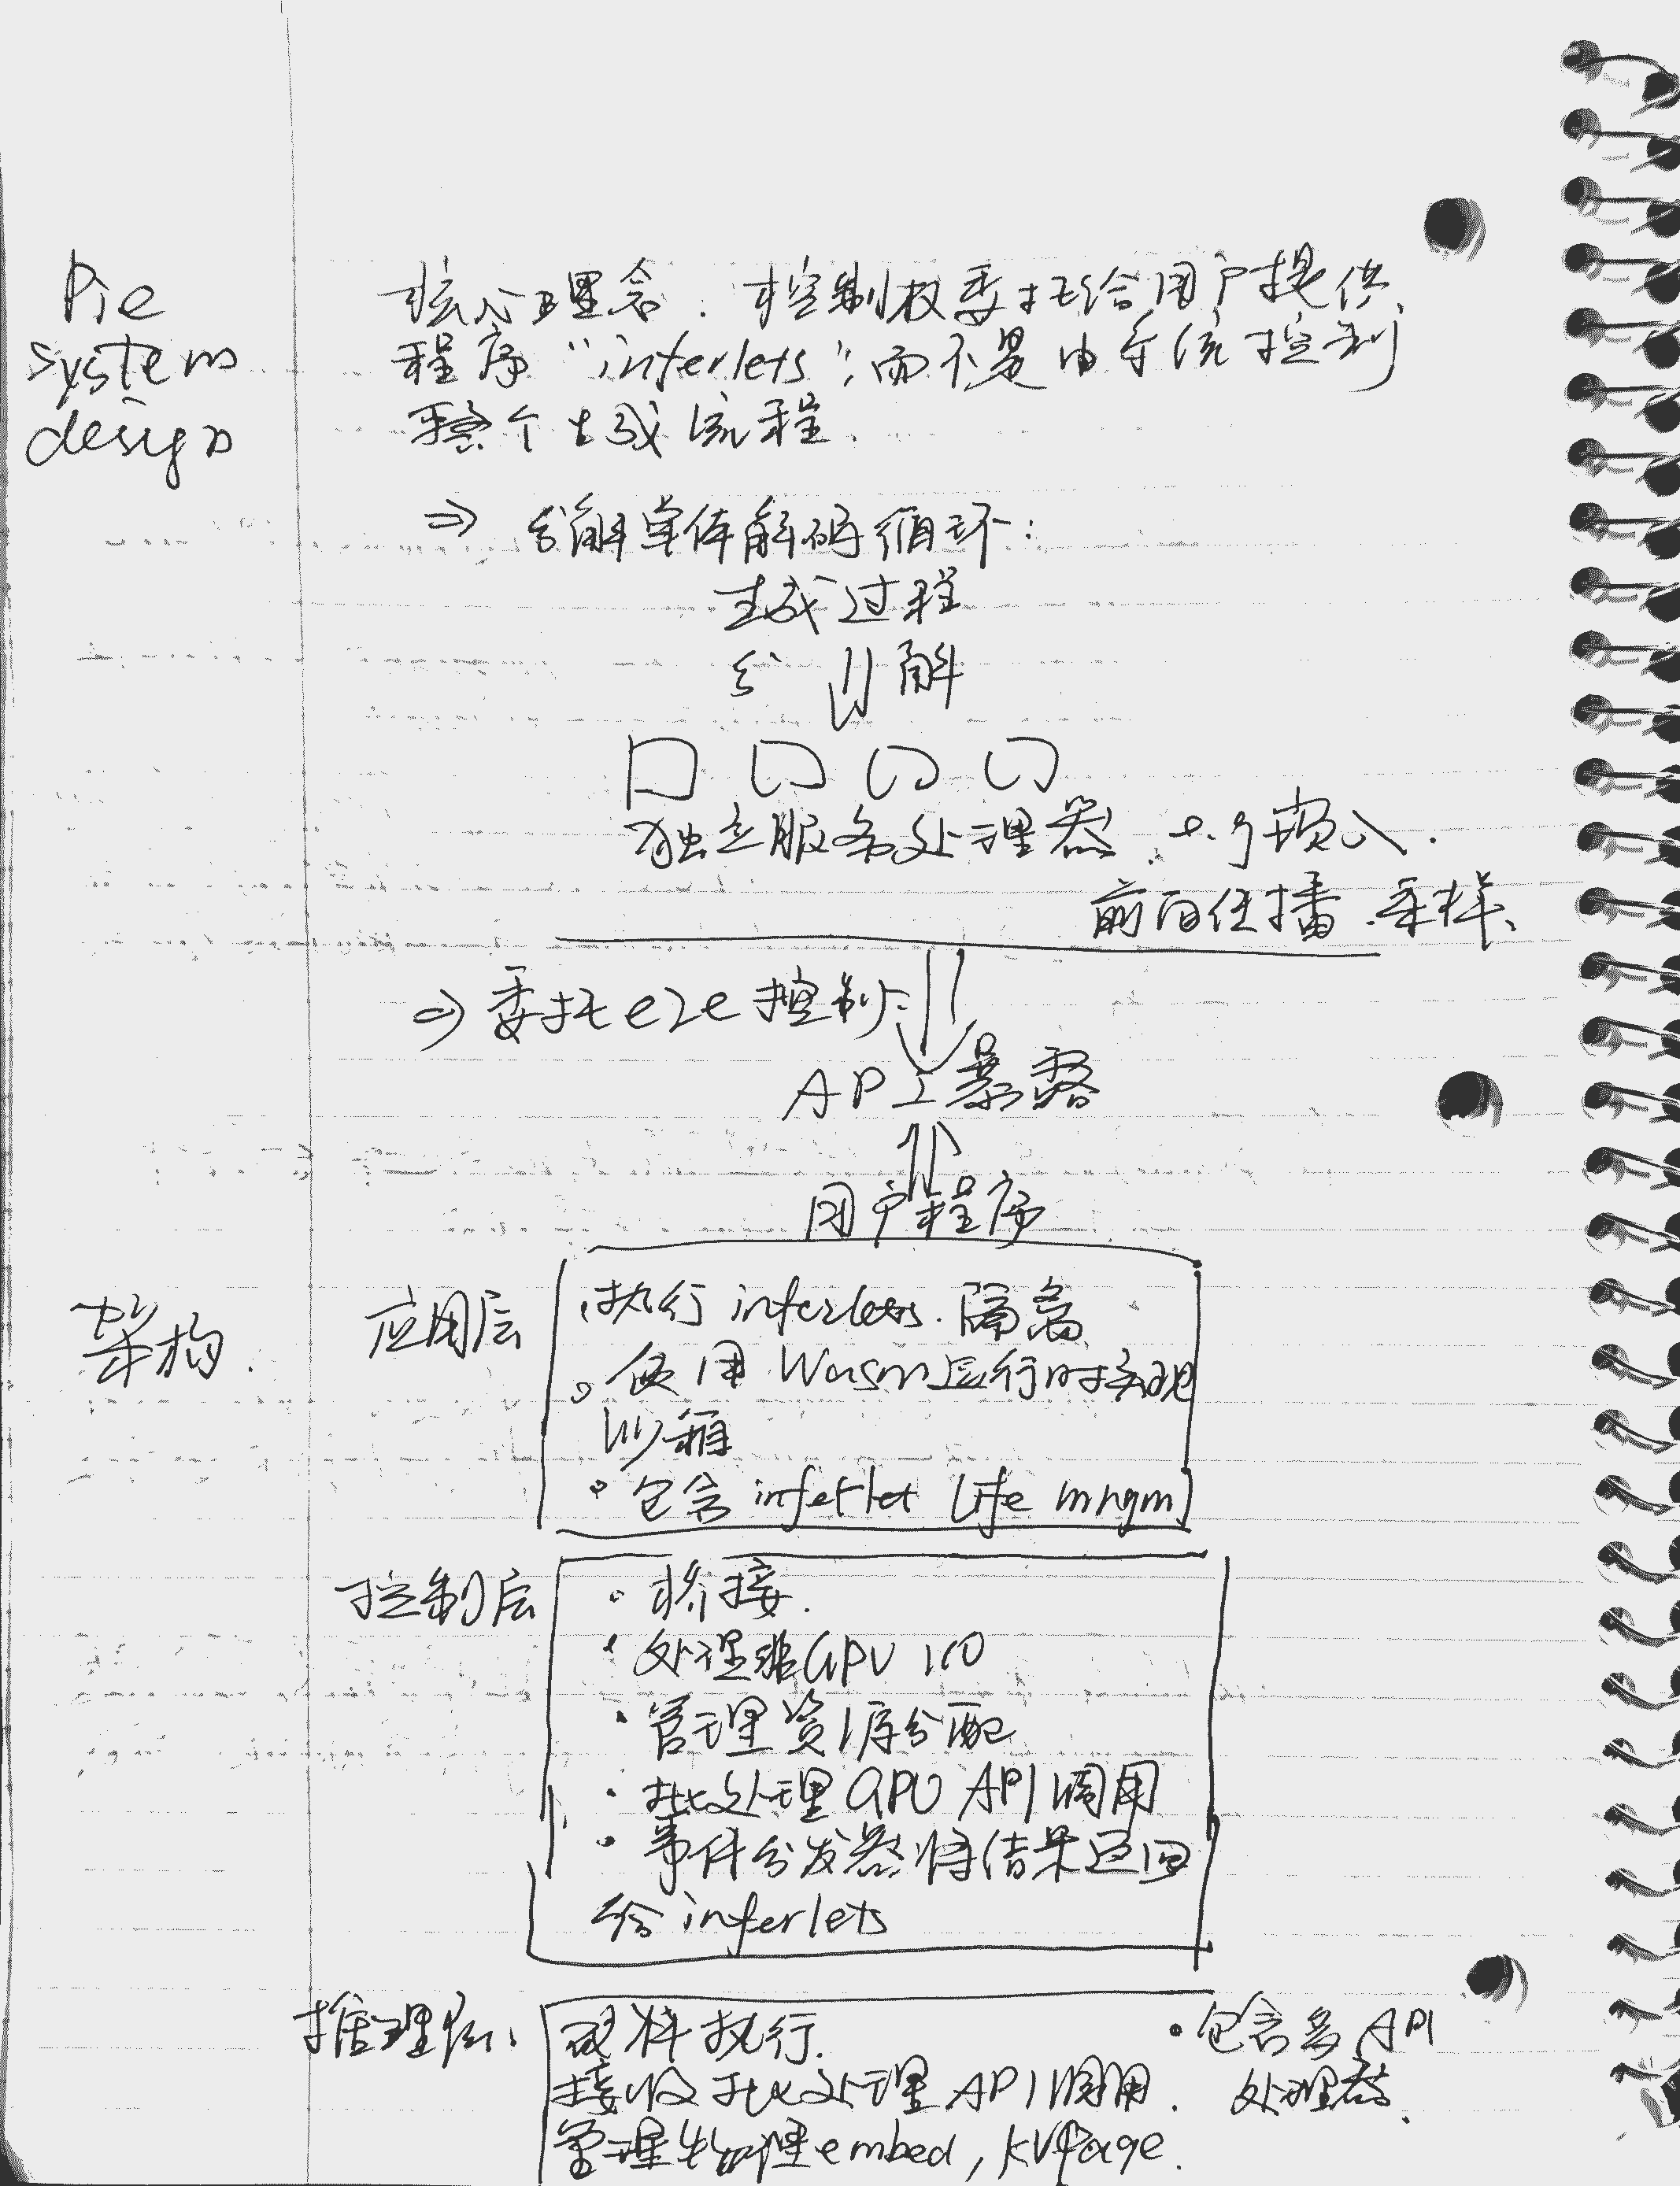 Pie
system
design
核心理念. 控制权委托给用户提供
程序 "inferlets", 而不是由系统控制
整个生成流程.
⇒ 分解单体解码循环:
生成过程
分 ⇓ 解
独立服务处理器. 如嵌入.
前向传播. 采样、
⇒ 委托 e2e 控制:
API 暴露
⇑
用户程序
架构.
应用层
执行 inferlets. 隔离
。使用 Wasm 运行时实现
沙箱
。包含 inferlet life mngm
控制层
· 桥接.
· 处理非GPU 任务
· 管理资源分配
· 批处理 GPU API 调用
· 事件分发器将结果返回
给 inferlets
推理层、
硬件执行.
接收批处理 API 调用.
管理物理 embed, KVPage.
· 包含各 API
处理器.